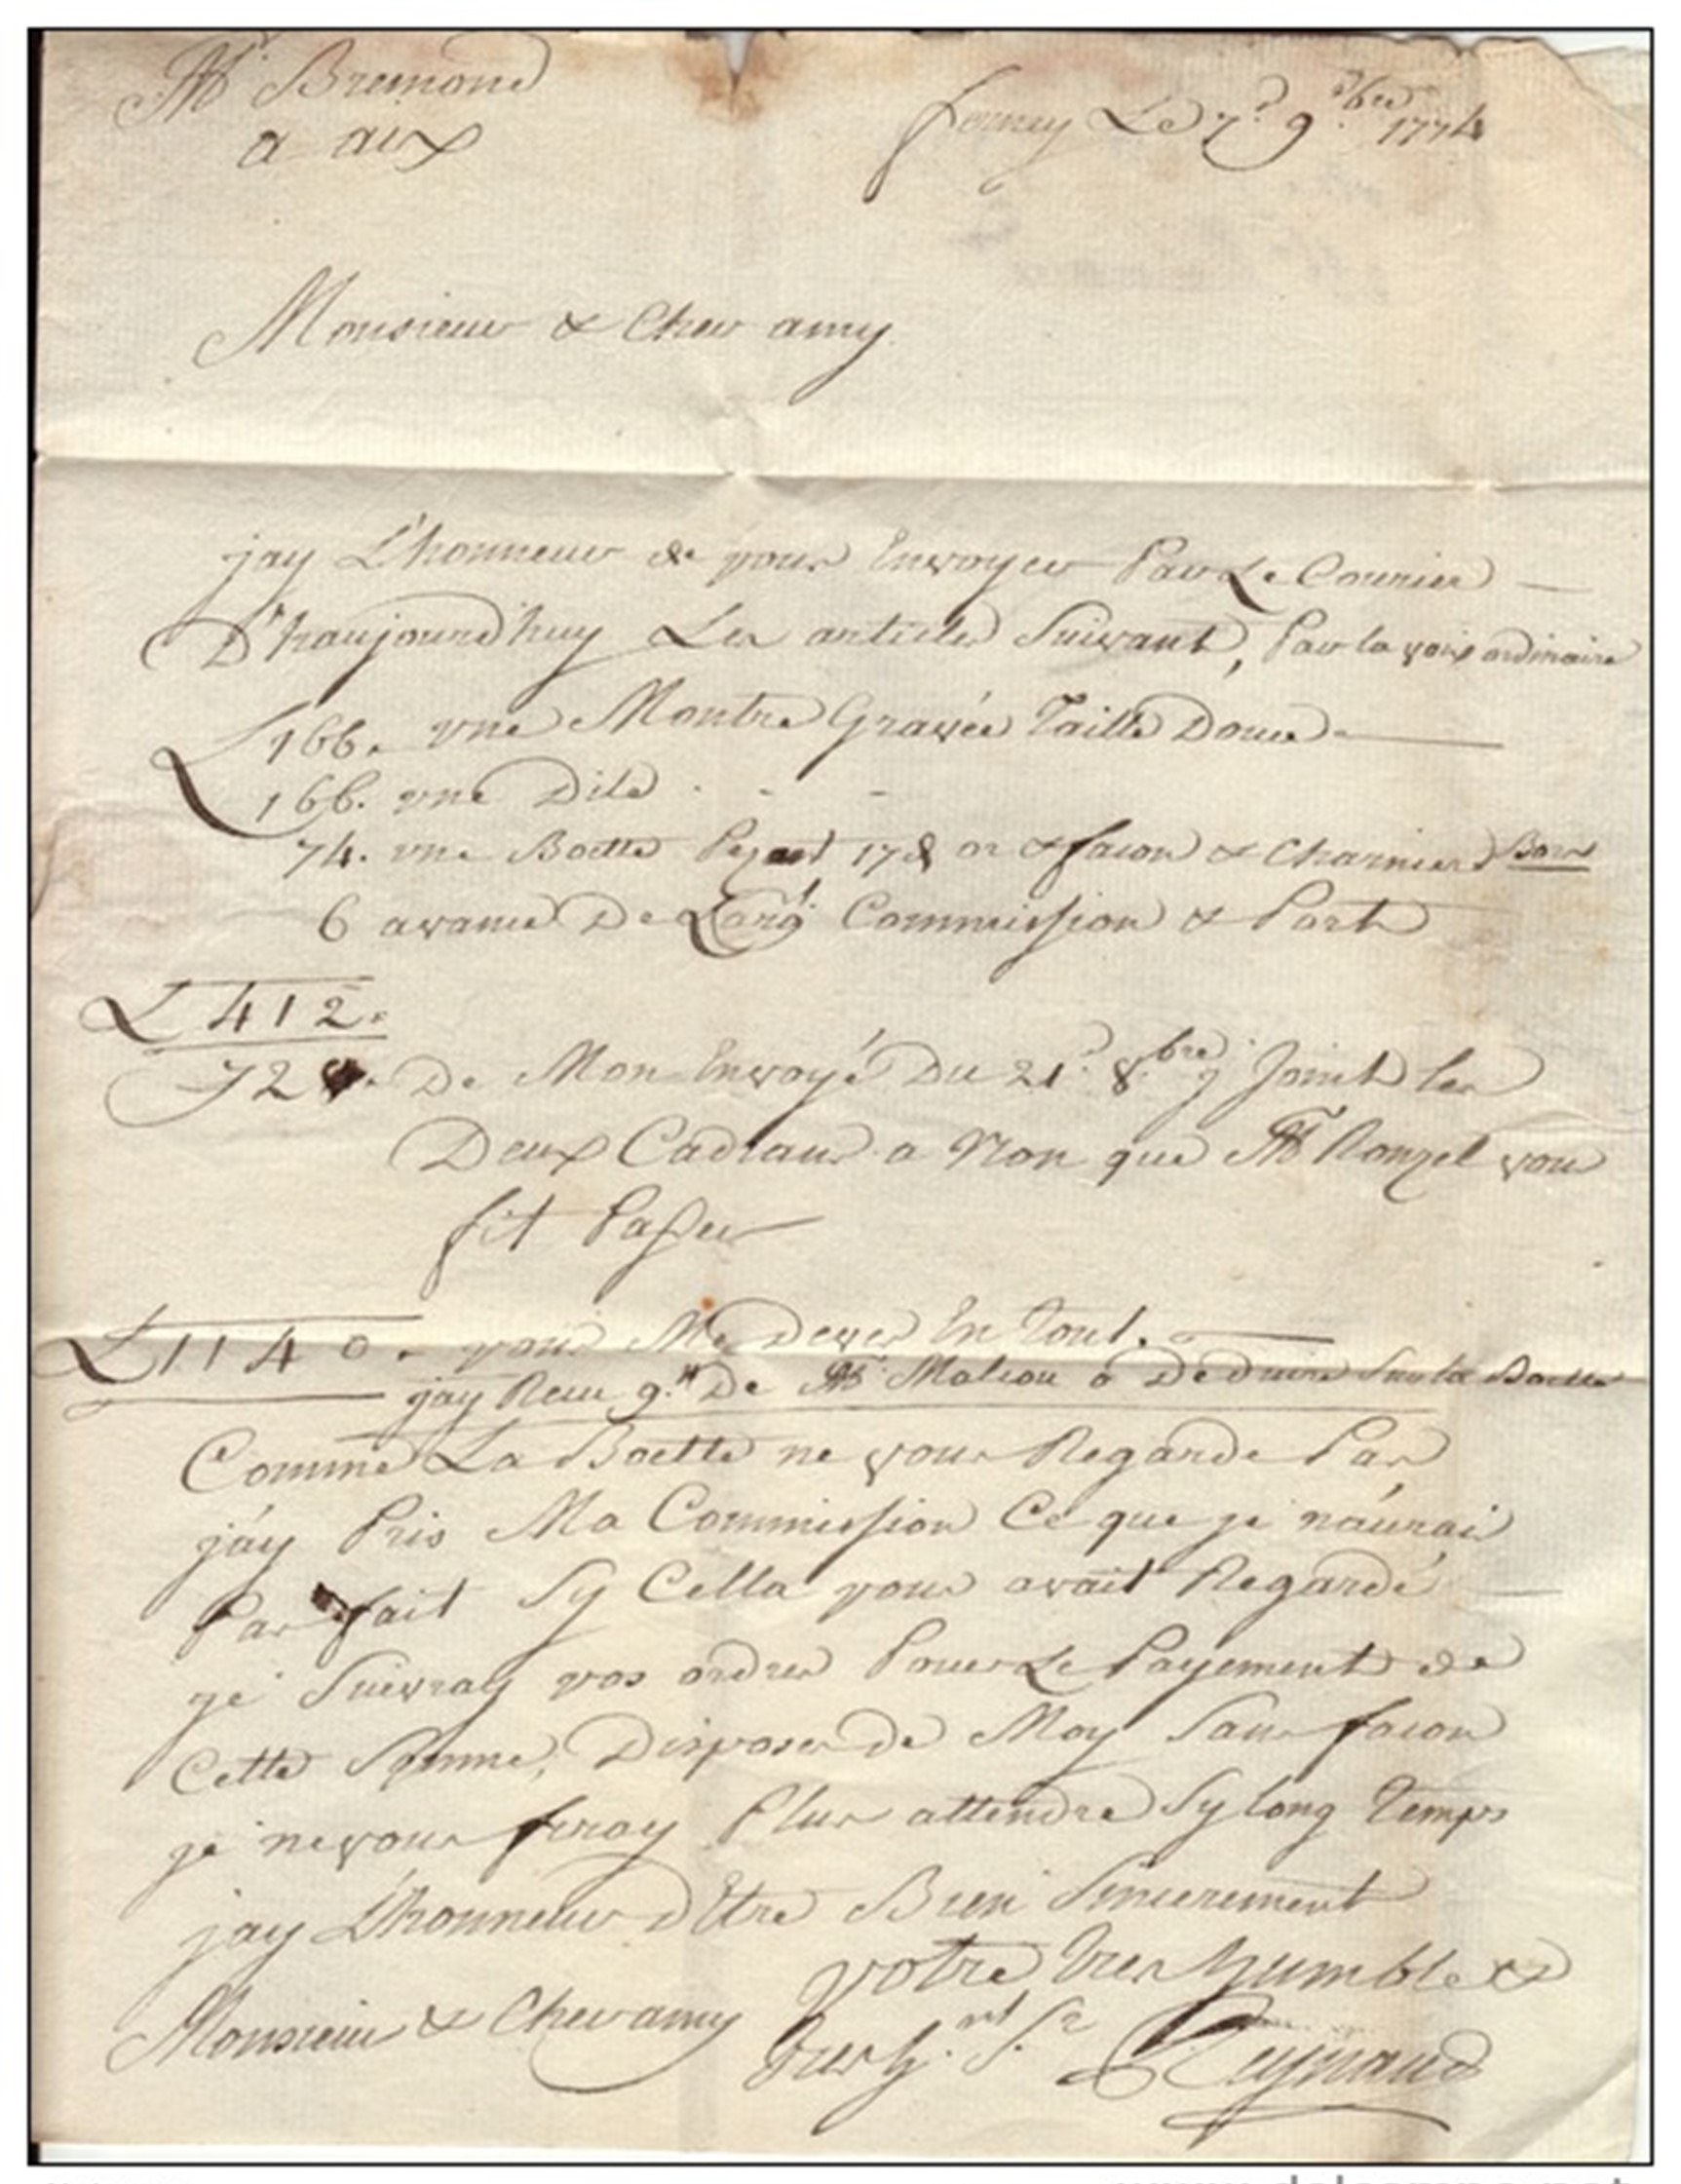 Mr Bremond
a aix
ferney Le 7e 9bre 1774
Monsieur & Cher amy
jay L'honneur de vous Envoyer Par Le Courier
D'haujourdhuy Les articles Suivant, Par la voix ordinaire
L 166. une Montre Gravée Taille Douce
166. une Dite
74. une Boette Pezant 178 or & facon & Charniere Bord
6 avance De Largt. Commission & Port
L 412.
728. De Mon Envoyé Du 21e 8bre y Joint les
Deux Cadrans a Non que Mr Ronzel vou
fit Passer
L 1140. vous Me Devez En Tout.
jay Recu 9.# De Mr Maliou a Deduire Sur la Boette
Comme La Boette ne vous Regarde Pas
j'ay Pris Ma Commission Ce que je n'aurai
Pas fait Sy Cella vous avait Regardé
je Suivray vos ordres Pour Le Payement de
Cette Somme, Disposes de Moy Sans facon
je ne vous feray Plus attendre Sy long Temps
jay L'honneur d'Etre Bien Sincerement
votre Tres humble &
Monsieur & Cher amy
Tres h. nt Sr Reynaud